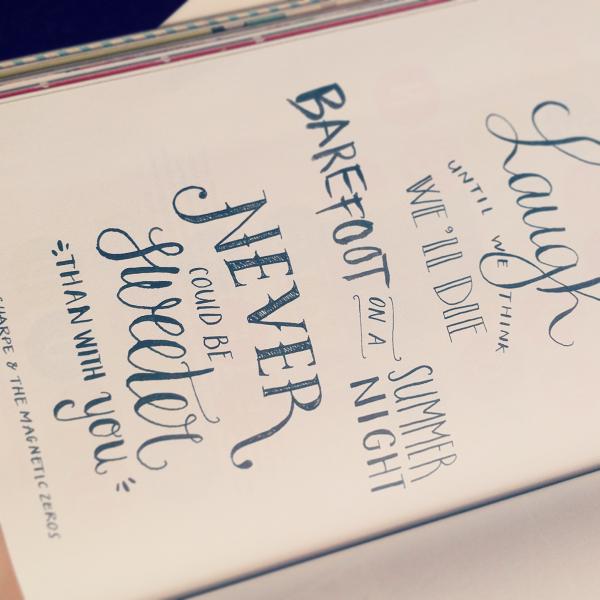 Laugh
UNTIL WE THINK
WE'll DIE
BAREFOOT ON A
SUMMER
NIGHT
NEVER
COULD BE
sweeter
THAN WITH you
& THE MAGNETIC ZEROS